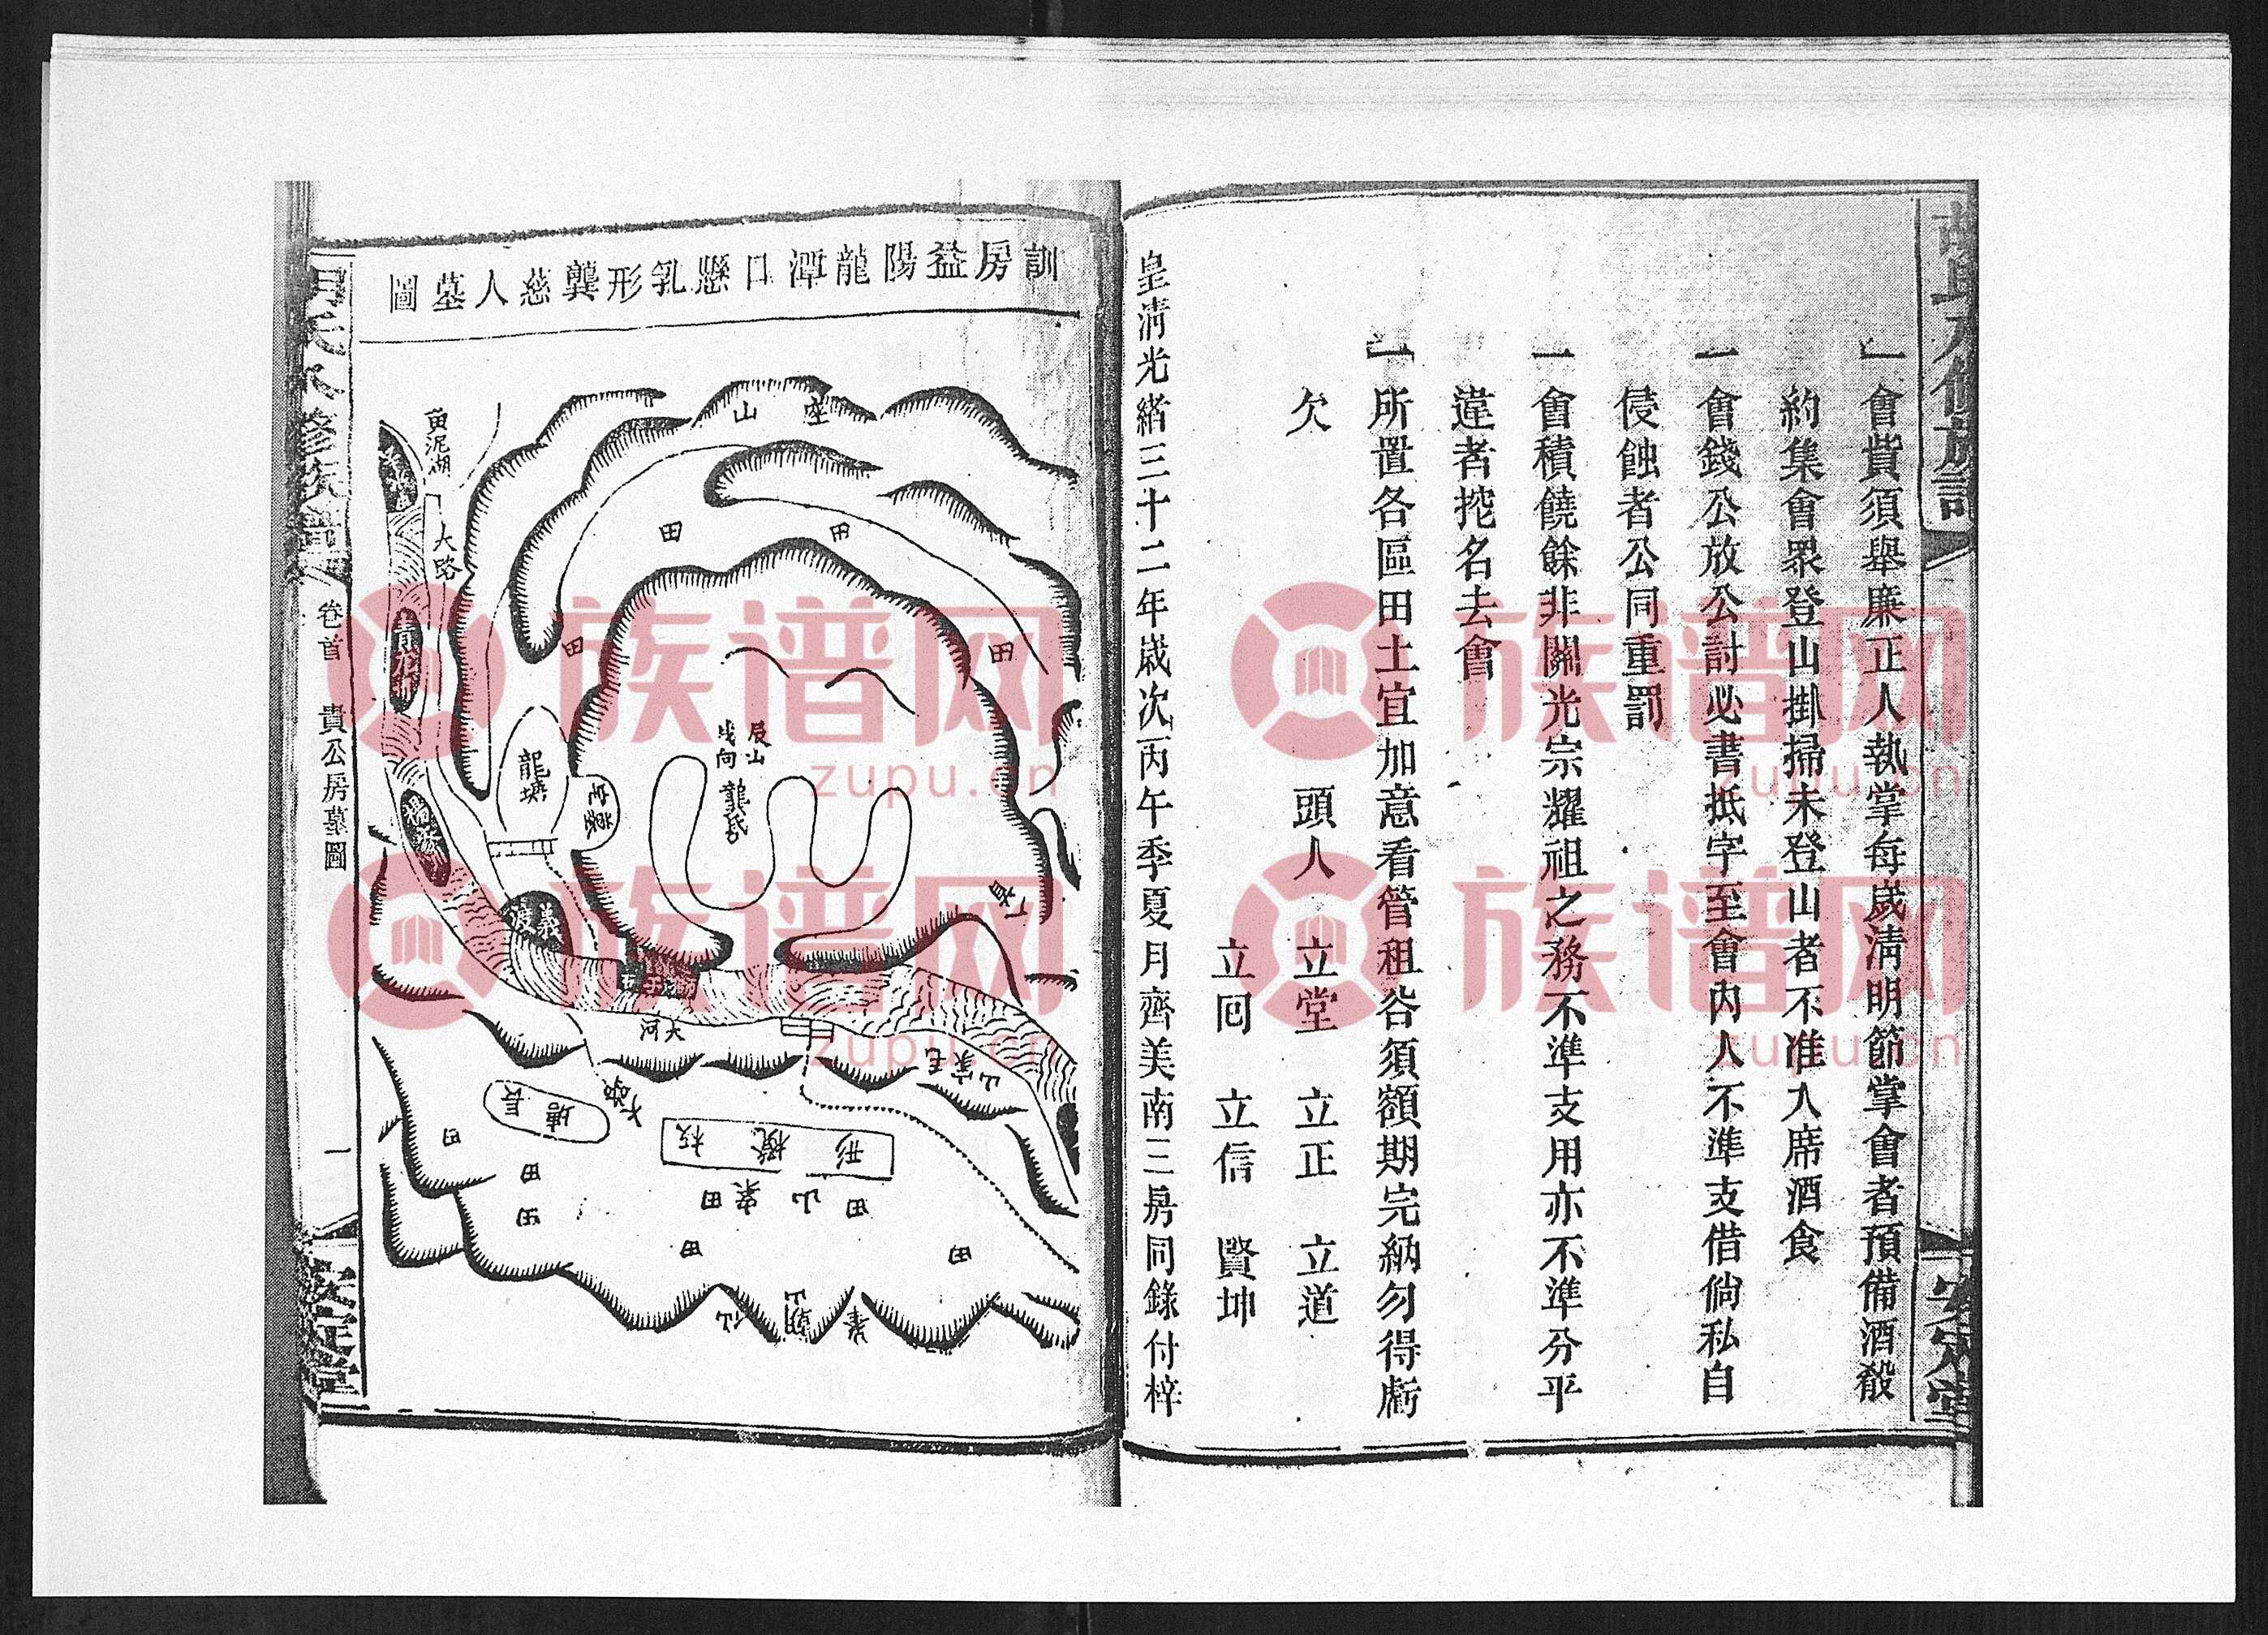 一會貲須舉廉正人執掌每歲淸明節掌會者預備酒殽
約集會眾登山掛掃未登山者不准入席酒食
一會錢公放公討必書抵字至會內人不準支借倘私自
侵蝕者公同重罰
一會積饒餘非關光宗耀祖之務不準支用亦不準分平
違者挖名去會
一所置各區田土宜加意看管租谷須額期完納勿得虧
欠　頭人　立堂　立正　立道
立囘　立信　賢坤
皇淸光緒三十二年歲次丙午季夏月齊美南三房同錄付梓
安定堂
訓房益陽龍潭口懸乳形龔慈人墓圖
卷首　貴公房墓圖　一
安定堂
空山
大路
田
田
田
田
艮山
龔氏
義渡
大河
毛家山
長塘
田
田
田
田
田
田
田
朝山
族谱网
zupu.cn
族谱网
zupu.cn
族谱网
zupu.cn
族谱网
zupu.cn